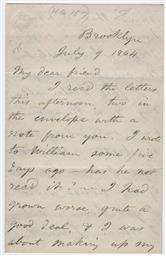 Brooklyn
July 9 1864
My dear friend
I read the letters
this afternoon, two in
the envelope with a
note from you. I wrote
to William some five
days ago – has he not
read it? I had
grown worse quite a
good deal, & I was
about making up my